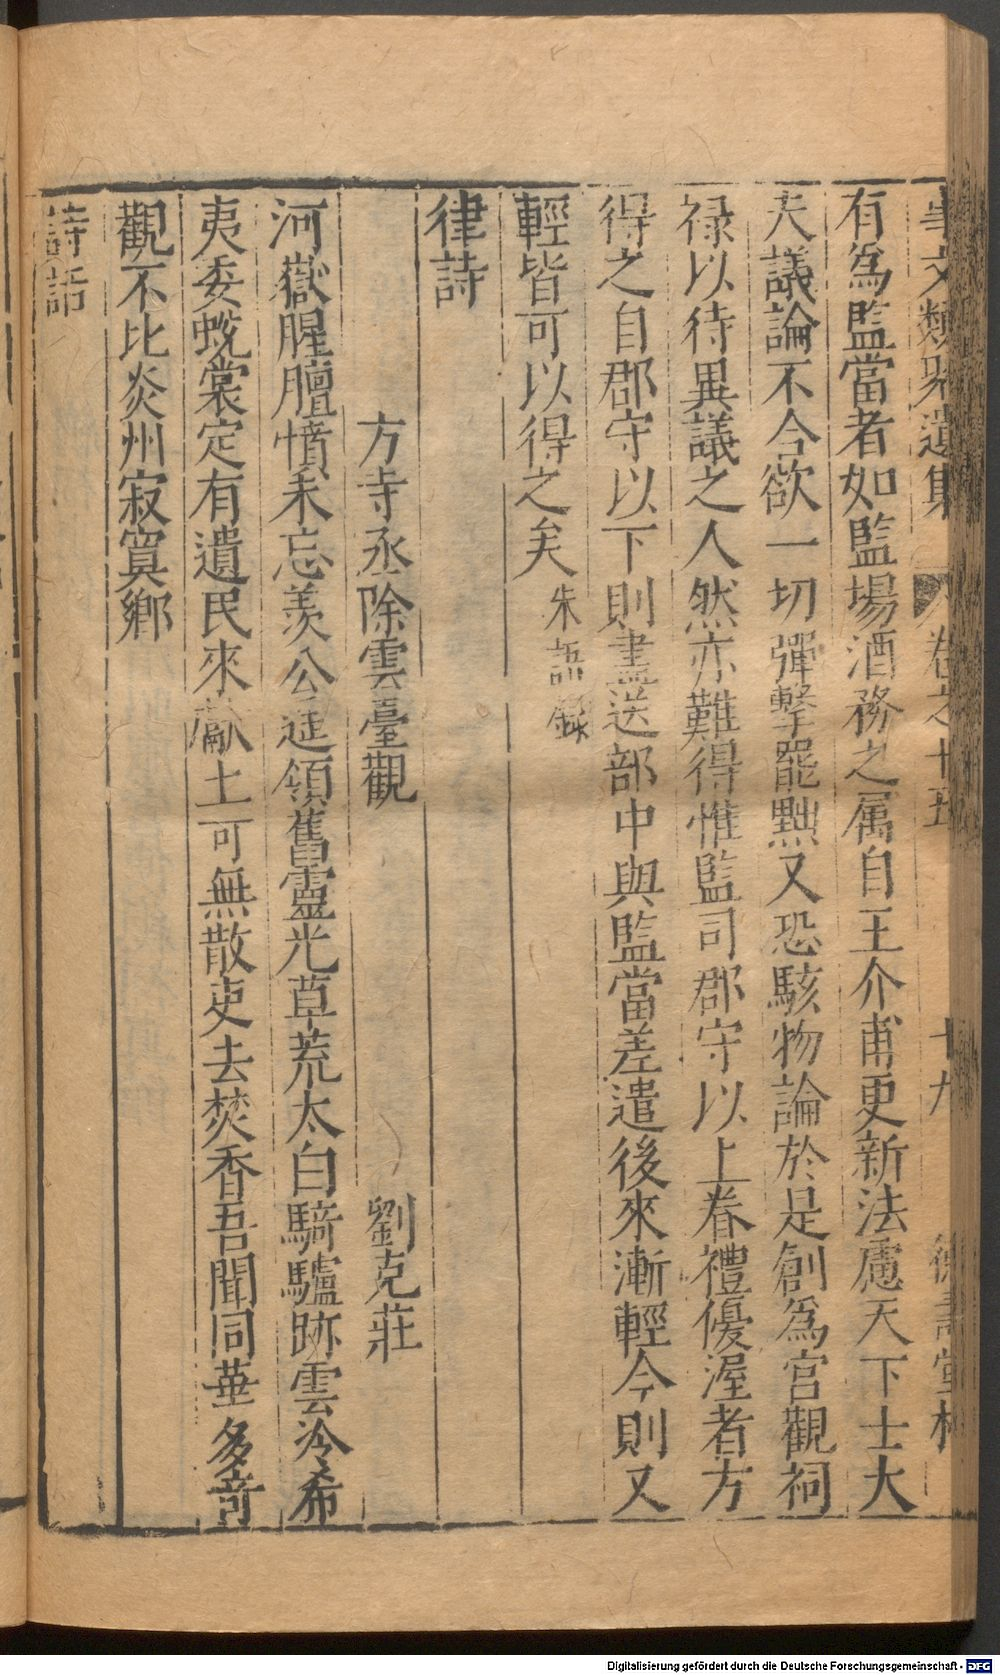 事文類聚遺集 卷之十五 十九 德壽堂梓
有爲監當者如監場酒務之属自王介甫更新法慮天下士大
夫議論不合欲一切彈擊罷黜又恐駭物論於是創爲宫觀祠
禄以待異議之人然亦難得惟監司郡守以上眷禮優渥者方
得之自郡守以下則盡送部中與監當差遣後來漸輕今則又
輕皆可以得之矣 朱語錄
律詩
方寺丞除雲臺觀 劉克莊
河嶽腥膻憤未忘羡公遥領舊靈光草荒太白騎驢跡雲冷希
夷委蛻裳定有遺民來獻土可無散吏去焚香吾聞同華多奇
觀不比炎州寂寞鄉
詩話
Digitalisierung gefördert durch die Deutsche Forschungsgemeinschaft - DFG